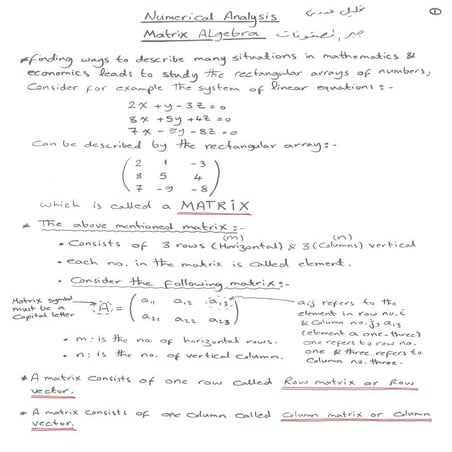 Numerical Analysis تحليل عددي
①
Matrix ALgebra جبر المصفوفات
* Finding ways to describe many situations in mathematics &
economics leads to study the rectangular arrays of numbers,
Consider for example the system of linear equations :-
2x + y - 3z = 0
8x + 5y + 4z = 0
7x - 9y - 8z = 0
Can be described by the rectangular array:-
( 2 1 -3
8 5 4
7 -9 -8 )
which is called a MATRIX
* The above mentioned matrix :-
(m) (n)
• Consists of 3 rows (Horizontal) & 3 (Columns) vertical
• each no. in the matrix is called element.
• Consider the following matrix:-
Matrix symbol
must be a
Capital letter
A = ( a11 a12 a13
a21 a22 a23 )
aij refers to the
element in row no. i
& Column no. j, a13
(element a one-three)
one refers to row no.
one & three refers to
Column no. three.
• m : is the no. of horizontal rows.
• n : is the no. of vertical column.
* A matrix consists of one row called Row matrix or Row
vector.
* A matrix consists of one column called Column matrix or Column
vector.